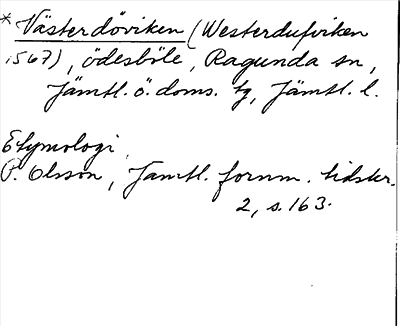 * Västerdöviken (Westerdufviken
1567), ödesböle, Ragunda sn,
Jämtl. ö. doms. tg, Jämtl. l.
Etymologi.
P. Olsson, Jämtl. fornm. tidskr.
2, s. 163.